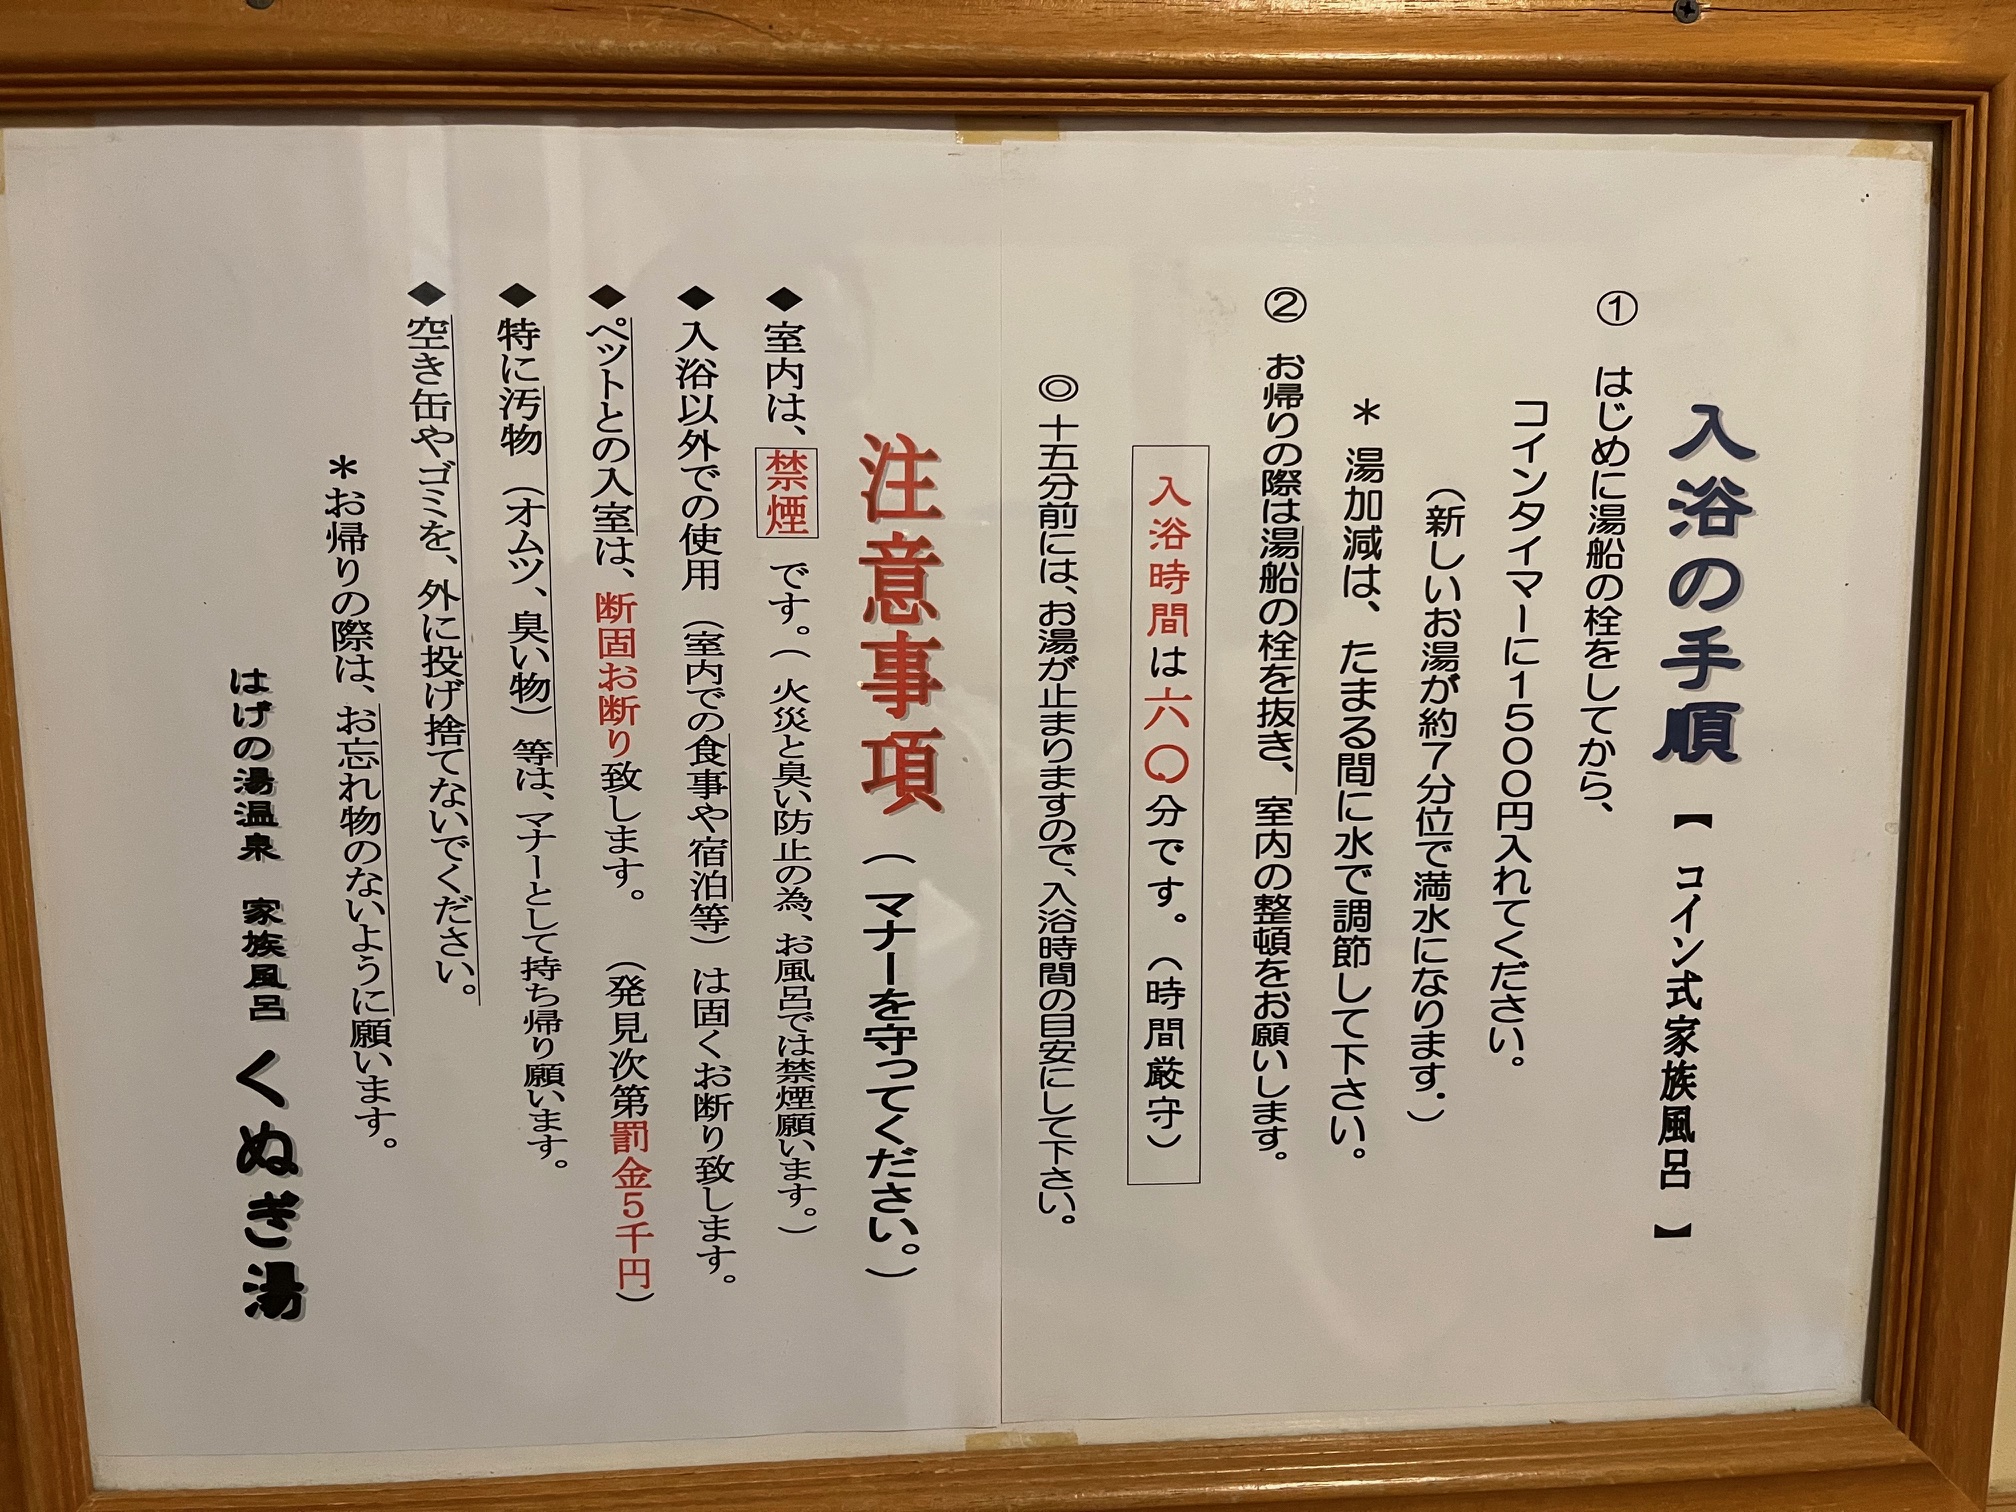 入浴の手順【コイン式家族風呂】
① はじめに湯船の栓をしてから、
コインタイマーに1500円入れてください。
(新しいお湯が約7分位で満水になります。)
＊ 湯加減は、たまる間に水で調節して下さい。
② お帰りの際は湯船の栓を抜き、室内の整頓をお願いします。
入浴時間は六〇分です。(時間厳守)
◎ 十五分前には、お湯が止まりますので、入浴時間の目安にして下さい。
注意事項(マナーを守ってください。)
◆ 室内は、禁煙です。(火災と臭い防止の為、お風呂では禁煙願います。)
◆ 入浴以外での使用(室内での食事や宿泊等)は固くお断り致します。
◆ ペットとの入室は、断固お断り致します。(発見次第罰金5千円)
◆ 特に汚物(オムツ、臭い物)等は、マナーとして持ち帰り願います。
◆ 空き缶やゴミを、外に投げ捨てないでください。
＊お帰りの際は、お忘れ物のないように願います。
はげの湯温泉 家族風呂 くぬぎ湯